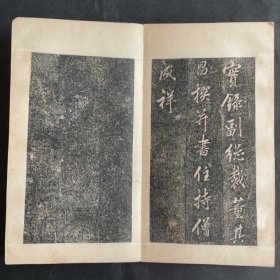 實錄副總裁黃其
昌撰并書住持僧
成祥